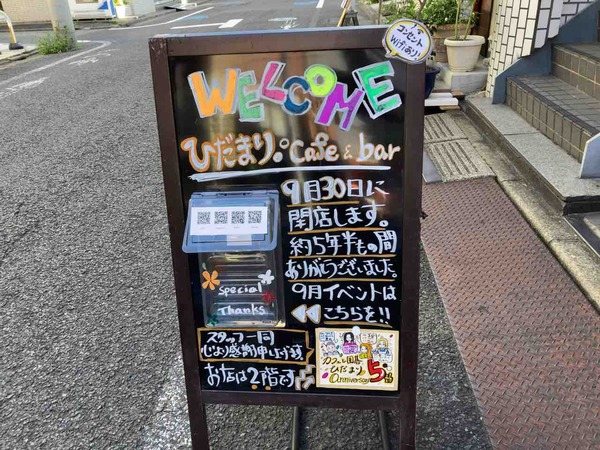 コンセント
Wifiあり!
WELCOME
ひだまり。Cafe & bar
9月30日に
閉店します。
約5年半もの間
ありがとうございました。
9月イベントは
こちらを!!
Special
Thanks
スタッフ一同
心より感謝申し上げます
お店は2階です
カフェ&バー
ひだまり。
5th
anniversary